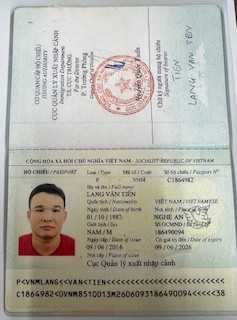 CƠ QUAN CẤP HỘ CHIẾU
ISSUING AUTHORITY
CỤC QUẢN LÝ XUẤT NHẬP CẢNH
Immigration Department
TL CỤC TRƯỞNG
For the Director
P. Trưởng Phòng
Chữ ký người mang hộ chiếu
Signature of bearer
TIÊN
LANG VAN
CỘNG HÒA XÃ HỘI CHỦ NGHĨA VIỆT NAM - SOCIALIST REPUBLIC OF VIETNAM
HỘ CHIẾU / PASSPORT
Loại / Type Mã số / Code Số hộ chiếu / Passport N°
P VNM C1864982
Họ và tên / Full name
LANG VĂN TIẾN
Quốc tịch / Nationality
VIỆT NAM / VIETNAMESE
Ngày sinh / Date of birth Nơi sinh / Place of birth
01 / 10 / 1985 NGHỆ AN
Giới tính / Sex Số GCMND / ID card N°
NAM / M 186490094
Ngày cấp / Date of issue Có giá trị đến / Date of expiry
09 / 06 / 2016 09 / 06 / 2026
Nơi cấp / Place of issue
Cục Quản lý xuất nhập cảnh
C1864982<0VNM8510013M2606093186490094<<<<<38